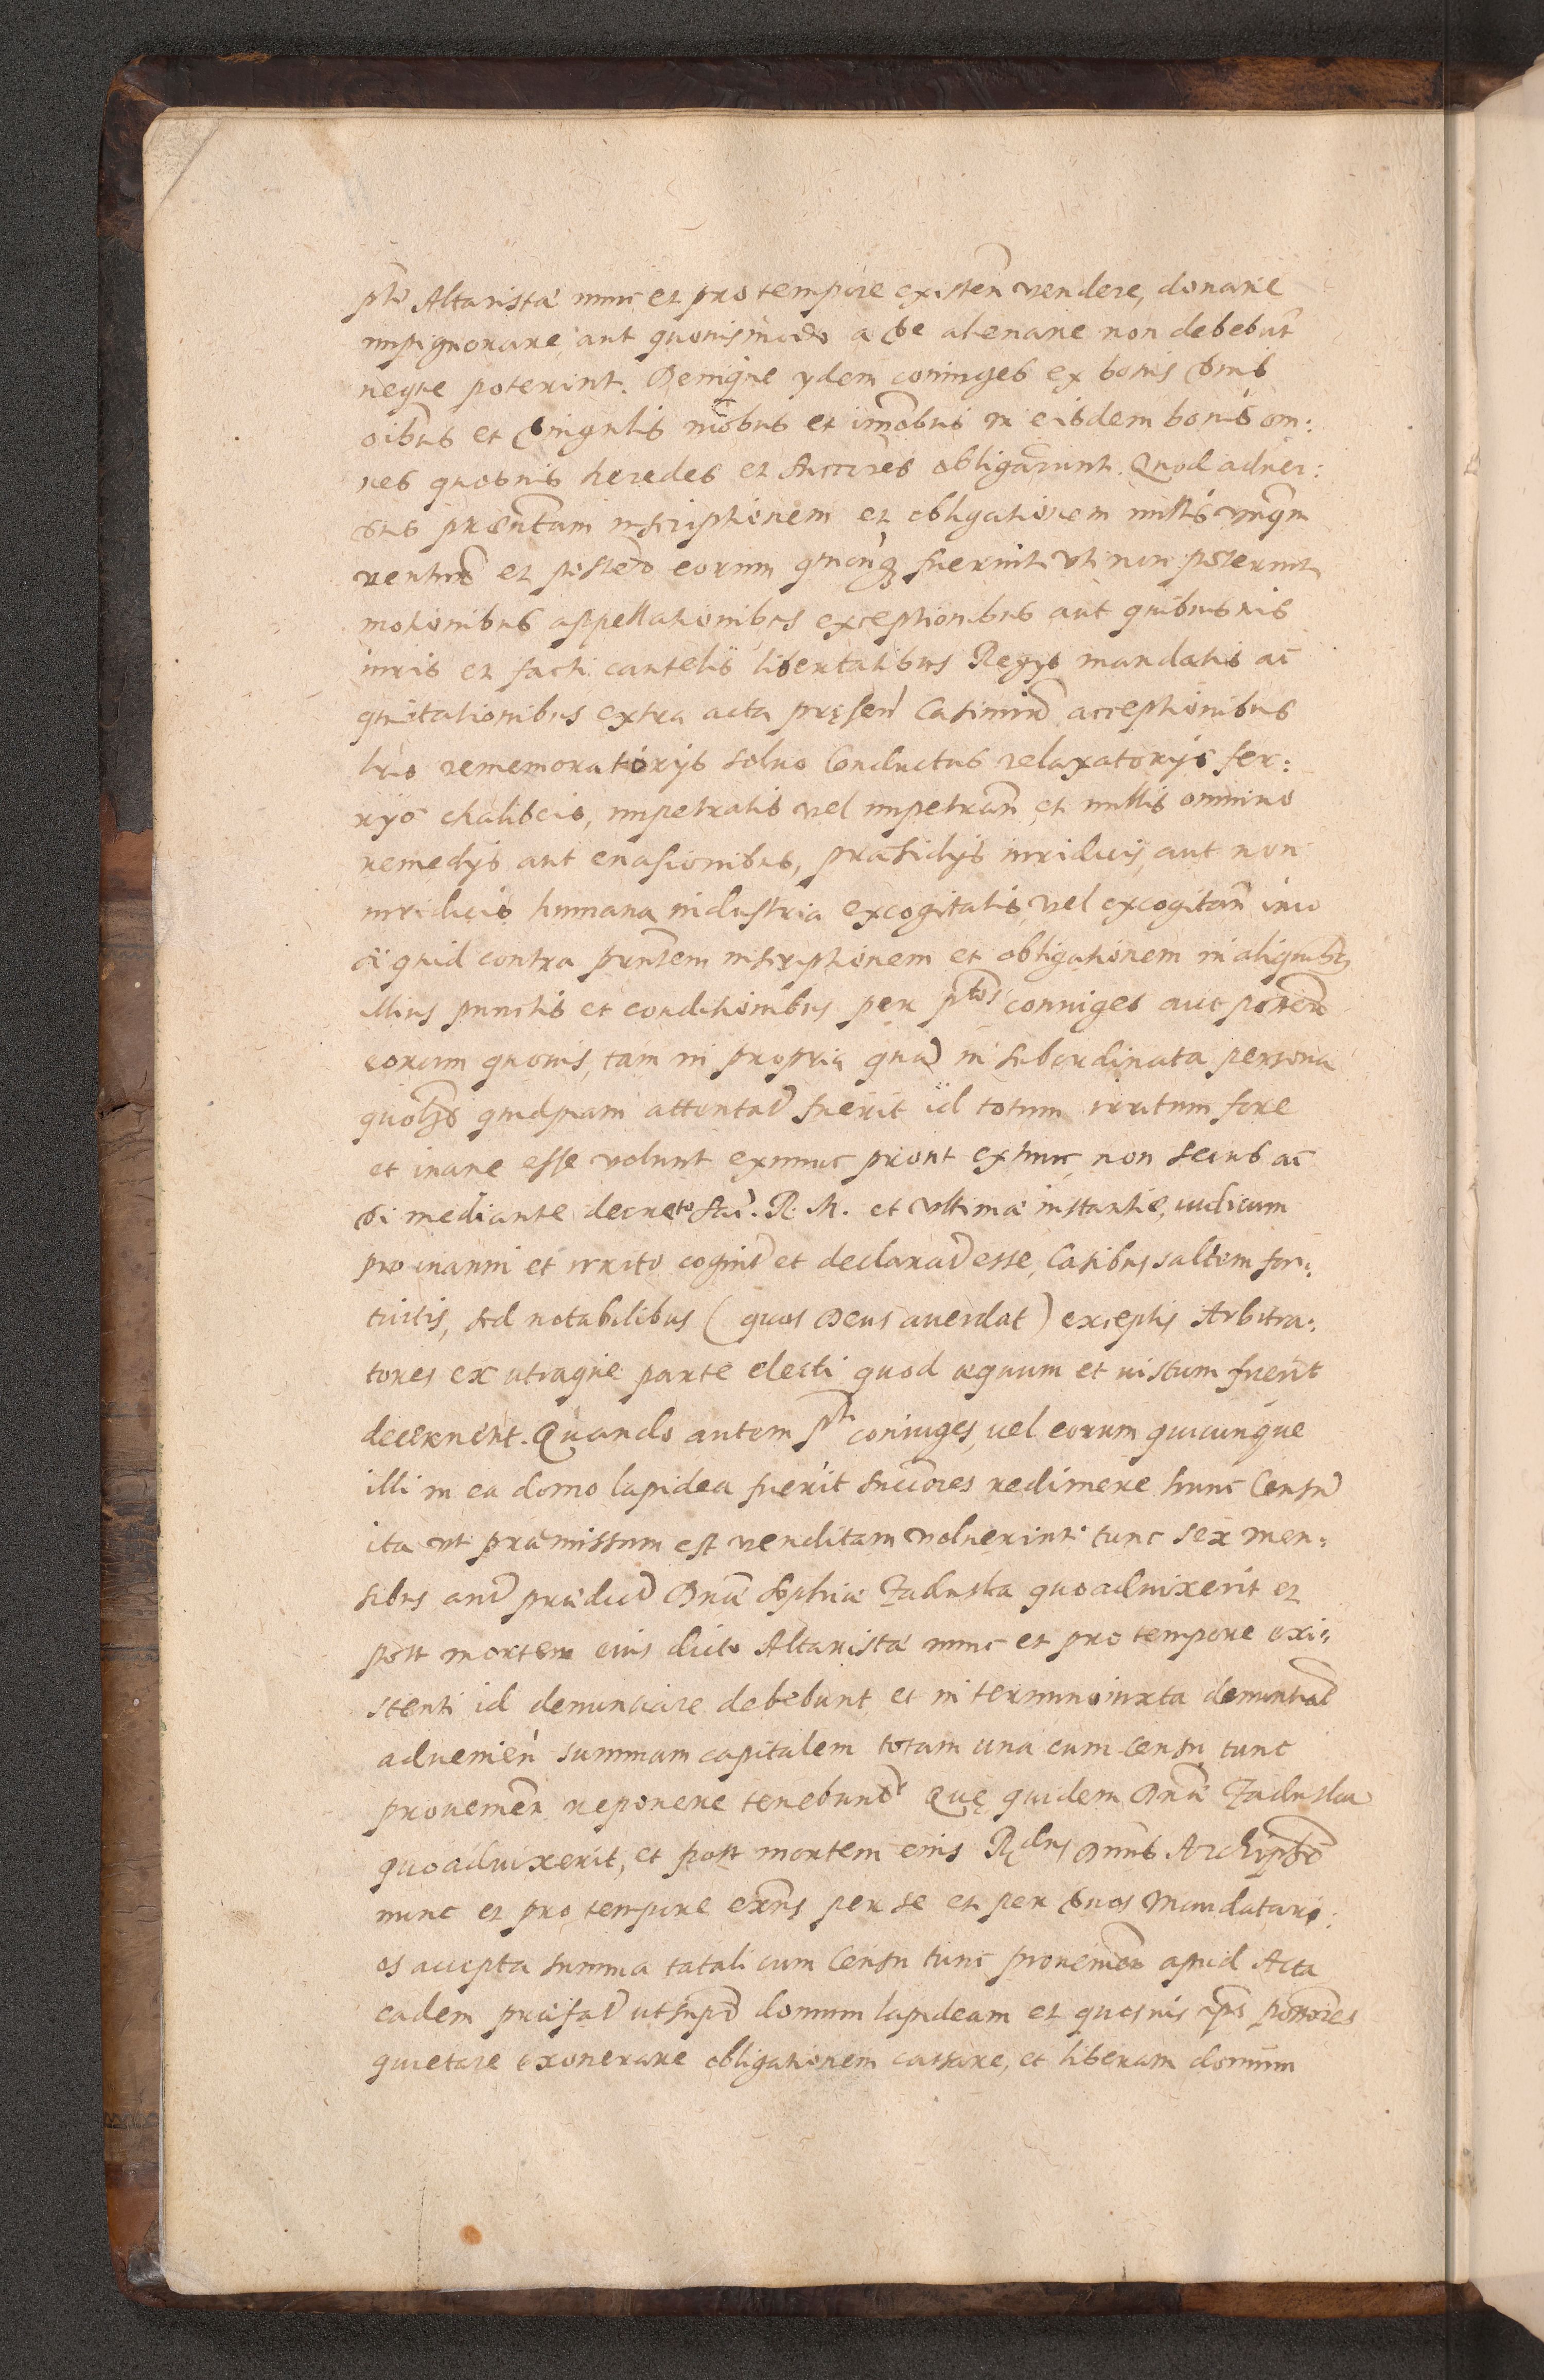 pto Altaristæ nunc et pro tempore existen̄ vendere, donare
impignorare, aut quovismodo a se alienare non debebūt
neque poterint. Deniqne ydem coniuges ex bonis suis
oibus et singulis mōbus et imōbus in eisdem bonis om:
nes quosuis heredes et succres obligārunt. Quod aduer:
sus præntam inscriptionem et obligationem nullis vnqm̄
ventur̄ et posterō eorum quicunq fuerint vti non poterint
motionibus appellationibus exceptionibus aut quibusuis
iuris et facti cautelis libertatibus Regys mandatis ac
quitationibus extra acta pręsen̄ Casimir̄ acceptionibus
tris rememoratorijs saluo Conductus relaxatorijs fer:
rys chalibeis, impetratis vel impetran̄ et nullis omnino
remedijs aut euasionibus, præsidijs iuridicis, aut non
iuridicis humana industria excogitatis vel excogitan̄ imo
si quid contra prntem inscriptionem et obligationem in aliquibus
illius punctis et conditionibus per ptos coniuges aut poster̄
eorum quouis, tam in propria quā in subordinata persona
quidpiam attentat̄ fuerit id totum irritum fore
et inane esse volunt exnunc prout extunc, non secus ac
si mediante decreto Sac. R. M. et vltimæ instantiæ, iudicum
pro inanni et irrito cognit̄ et declarat̄ esse, Casibus saltem for:
tuitis, sed notabilibus (quos Deus auerdat) exceptis Arbitra:
tores ex utraque parte electi quod æquum et iustum fuerit
decernent. Quando autem pti coniuges, uel eorum quicunque
illi in ea domo lapidea fuerit succōres redimere hunc Censū
ita vt præmissum est venditam voluerint tunc sex men:
sibus ant̄ prædict̄ Dnæ Sophiæ Zaduska quoaduixerit et
post mortem eius dicto Altaristæ nunc et pro tempore exi:
stenti id denunciare debebunt et in termino iuxta denuntiat̄
aduenien̄ summam capitalem totam una cum Censu tunc
prouenien̄ reponere tenebunt̄r Quę quidem Dnæ Zaduska
quoaduixerit, et post mortem eius Rdus Dnus Archipb̄r
nunc et pro tempore exn̄s per se et per suos Mandatari:
os accepta summa tatali cum Censu tunc prouenien̄ apud Acta
eadem præfat̄ ut supr̄ domum lapideam et quosuis ips̄ possōres
quietare exonerare obligationem cassare, et liberam domum